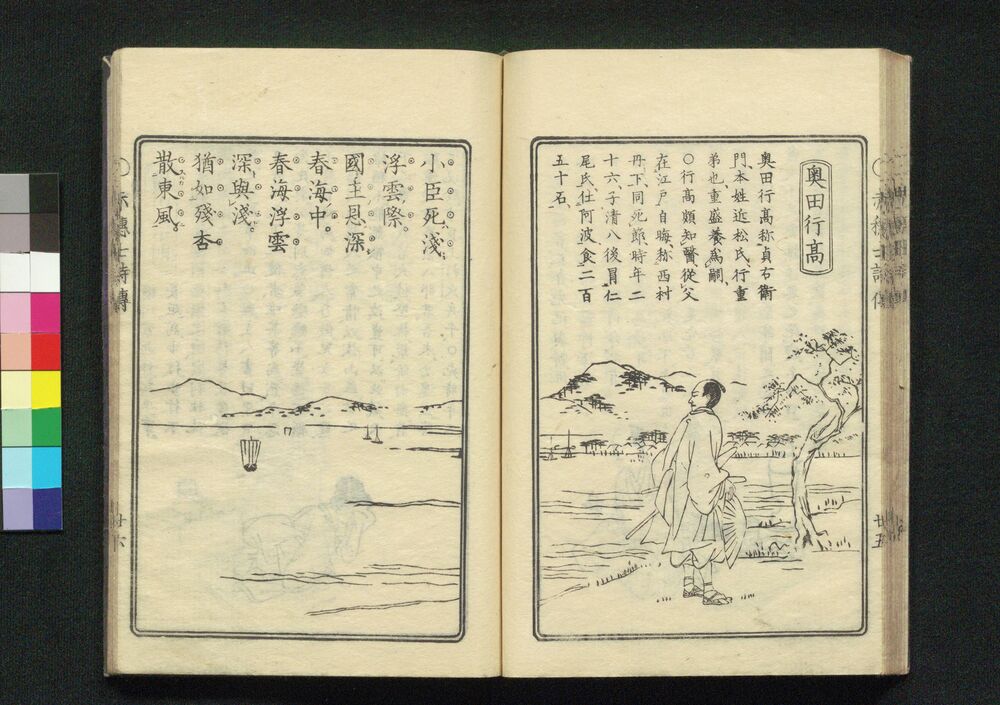 奥田行高
奥田行髙称貞右衛
門、本姓近松氏、行重
弟也重盛養為嗣、
○行高頗知醫、從父
在江戸自晦、称西村
丹下、同死節、時年二
十六、子清八後冒仁
尾氏、仕阿波食二百
五十石、
廿五
小臣死淺
浮雲際。
國主恩深
春海中。
春海浮雲
深與淺。
猶如殘杏
散東風。
廿六